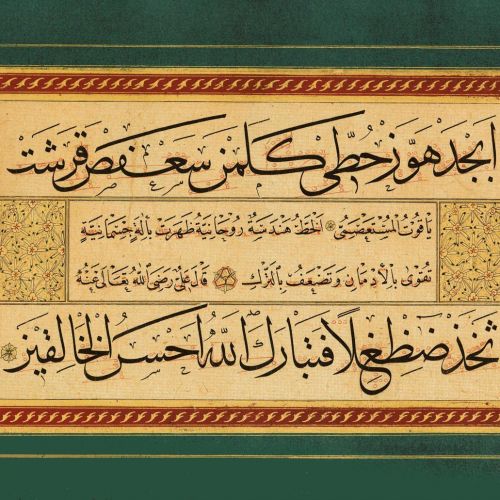 ابجد هوز حطي كلمن سعفص قرشت
ياقوت المستعصمي الخط هندسة روحانية ظهرت بآلة جسمانية
تقوى بالأدمان وتضعف بالترك قال علي رضي الله تعالى عنه
ثخذ ضظغلا فتبارك الله احسن الخالقين